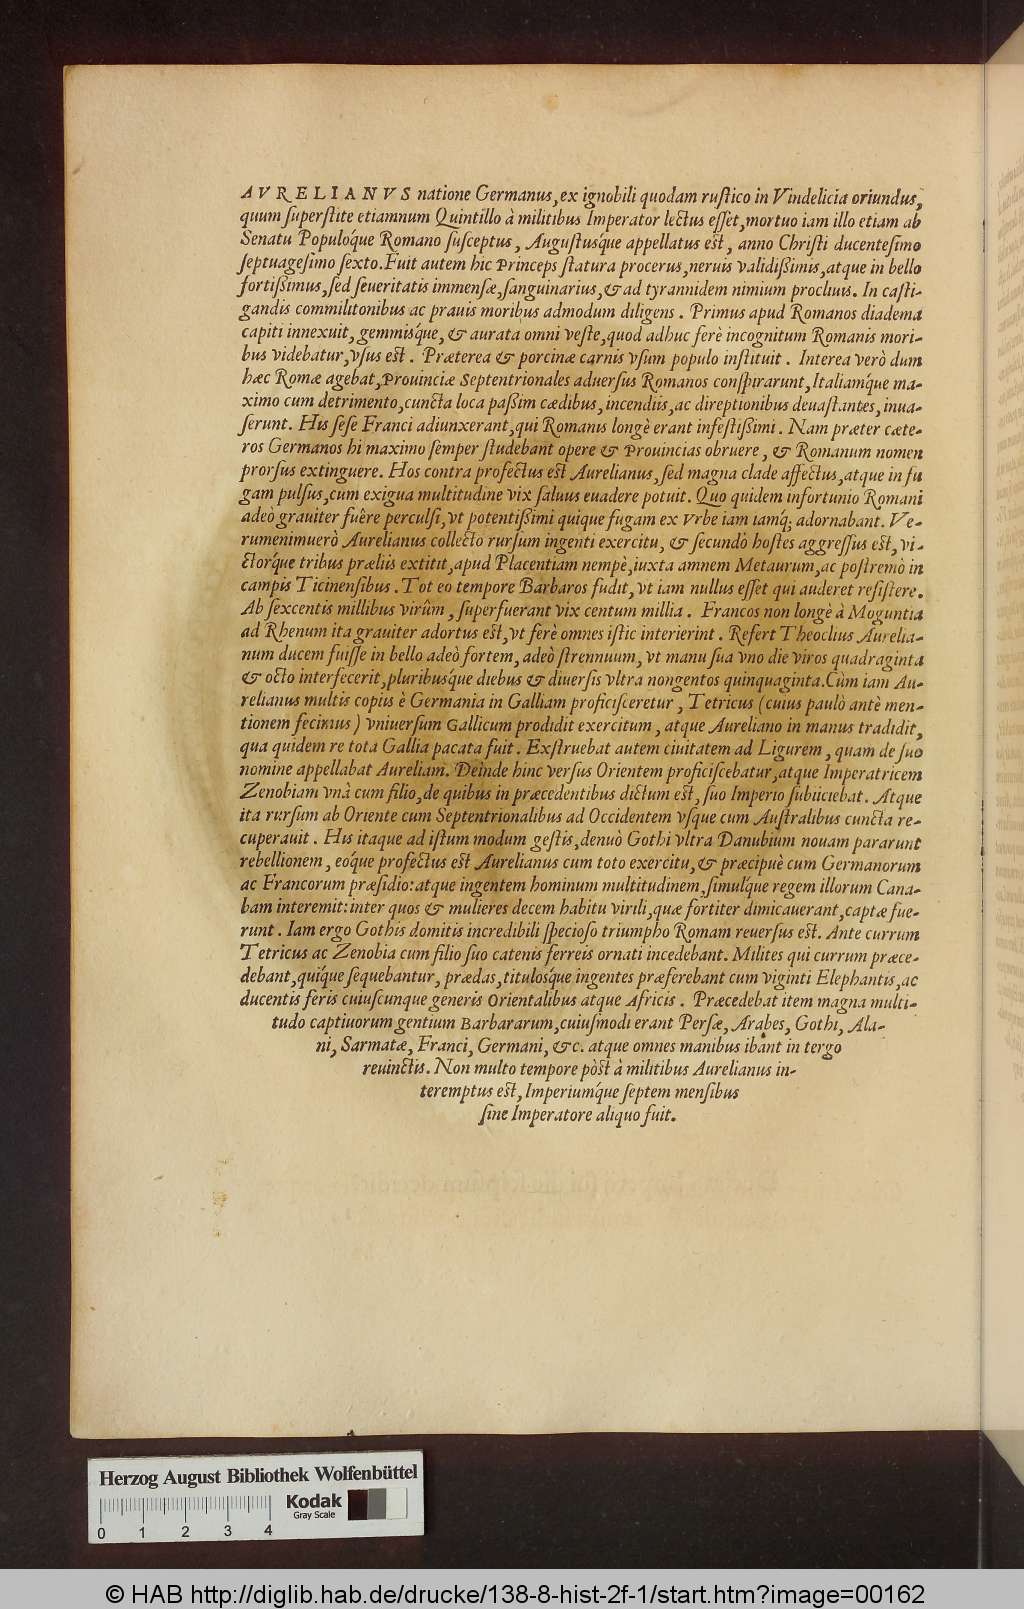 AVRELIANVS natione Germanus, ex ignobili quodam ruſtico in Vindelicia oriundus,
quum ſuperſtite etiamnum Quintillo à militibus Imperator lectus eſſet, mortuo iam illo etiam ab
Senatu Populoq́ue Romano ſuſceptus, Auguſtusq́ue appellatus eſt, anno Chriſti ducenteſimo
ſeptuageſimo ſexto. Fuit autem hic Princeps ſtatura procerus, neruis validißimis, atque in bello
fortißimus, ſed ſeueritatis immenſæ, ſanguinarius, & ad tyrannidem nimium procliuis. In caſti-
gandis commilitonibus ac prauis moribus admodum diligens. Primus apud Romanos diadema
capiti innexuit, gemmisq́ue, & aurata omni veſte, quod adhuc ferè incognitum Romanis mori-
bus videbatur, vſus eſt. Præterea & porcinæ carnis vſum populo inſtituit. Interea verò dum
hæc Romæ agebat, Prouinciæ Septentrionales aduerſus Romanos conſpirarunt, Italiamq́ue ma-
ximo cum detrimento, cuncta loca paßim cædibus, incendiis, ac direptionibus deuaſtantes, inua-
ſerunt. His ſeſe Franci adiunxerant, qui Romanis longè erant infeſtißimi. Nam præter cæte-
ros Germanos hi maximo ſemper ſtudebant opere & Prouincias obruere, & Romanum nomen
prorſus extinguere. Hos contra profectus eſt Aurelianus, ſed magna clade affectus, atque in fu
gam pulſus, cum exigua multitudine vix ſaluus euadere potuit. Quo quidem infortunio Romani
adeò grauiter fuêre perculſi, vt potentißimi quique fugam ex Vrbe iam iamq́; adornabant. Ve-
rumenimuerò Aurelianus collecto rurſum ingenti exercitu, & ſecundò hoſtes aggreſſus eſt, vi-
ctorq́ue tribus præliis extitit, apud Placentiam nempè, iuxta amnem Metaurum, ac poſtremò in
campis Ticinenſibus. Tot eo tempore Barbaros fudit, vt iam nullus eſſet qui auderet reſiſtere.
Ab ſexcentis millibus virûm, ſuperfuerant vix centum millia. Francos non longè à Moguntia
ad Rhenum ita grauiter adortus eſt, vt ferè omnes iſtic interierint. Refert Theoclius Aurelia-
num ducem fuiſſe in bello adeò fortem, adeò ſtrennuum, vt manu ſua vno die viros quadraginta
& octo interfecerit, pluribusque diebus & diuerſis vltra nongentos quinquaginta. Cùm iam Au-
relianus multis copiis è Germania in Galliam proficiſceretur, Tetricus (cuius paulò antè men-
tionem fecimus) vniuerſum Gallicum prodidit exercitum, atque Aureliano in manus tradidit,
qua quidem re tota Gallia pacata fuit. Exſtruebat autem ciuitatem ad Ligurem, quam de ſuo
nomine appellabat Aureliam. Deinde hinc verſus Orientem proficiſcebatur, atque Imperatricem
Zenobiam vnà cum filio, de quibus in præcedentibus dictum eſt, ſuo Imperio ſubiiciebat. Atque
ita rurſum ab Oriente cum Septentrionalibus ad Occidentem vſque cum Auſtralibus cuncta re-
cuperauit. His itaque ad iſtum modum geſtis, denuò Gothi vltra Danubium nouam pararunt
rebellionem, eoq́ue profectus eſt Aurelianus cum toto exercitu, & præcipuè cum Germanorum
ac Francorum præſidio: atque ingentem hominum multitudinem, ſimulq́ue regem illorum Cana-
bam interemit: inter quos & mulieres decem habitu virili, quæ fortiter dimicauerant, captæ fue-
runt. Iam ergo Gothis domitis incredibili ſpecioſo triumpho Romam reuerſus eſt. Ante currum
Tetricus ac Zenobia cum filio ſuo catenis ferreis ornati incedebant. Milites qui currum præce-
debant, quiq́ue ſequebantur, prædas, titulosq́ue ingentes præferebant cum viginti Elephantis, ac
ducentis feris cuiuſcunque generis Orientalibus atque Africis. Præcedebat item magna multi-
tudo captiuorum gentium Barbararum, cuiuſmodi erant Perſæ, Arabes, Gothi, Ala-
ni, Sarmatæ, Franci, Germani, &c. atque omnes manibus ibant in tergo
reuinctis. Non multo tempore pòſt à militibus Aurelianus in-
teremptus eſt, Imperiumq́ue ſeptem menſibus
ſine Imperatore aliquo fuit.
Herzog August Bibliothek Wolfenbüttel
Kodak
Gray Scale
0 1 2 3 4
© HAB http://diglib.hab.de/drucke/138-8-hist-2f-1/start.htm?image=00162